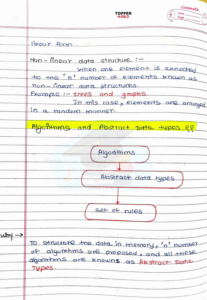 TOPPER
WORLD
linear form.
Non-linear data structure :-
When one element is connected
to the 'n' number of elements known as
non-linear data structures.
Example :- trees and graphs
In this case, elements are arranged
in a random manner.
Algorithms and Abstract Data types
Algorithms
Abstract data types
set of rules
Why →
To structure the data in memory, 'n' number
of algorithms are proposed, and all these
algorithms are known as Abstract Data
Types.